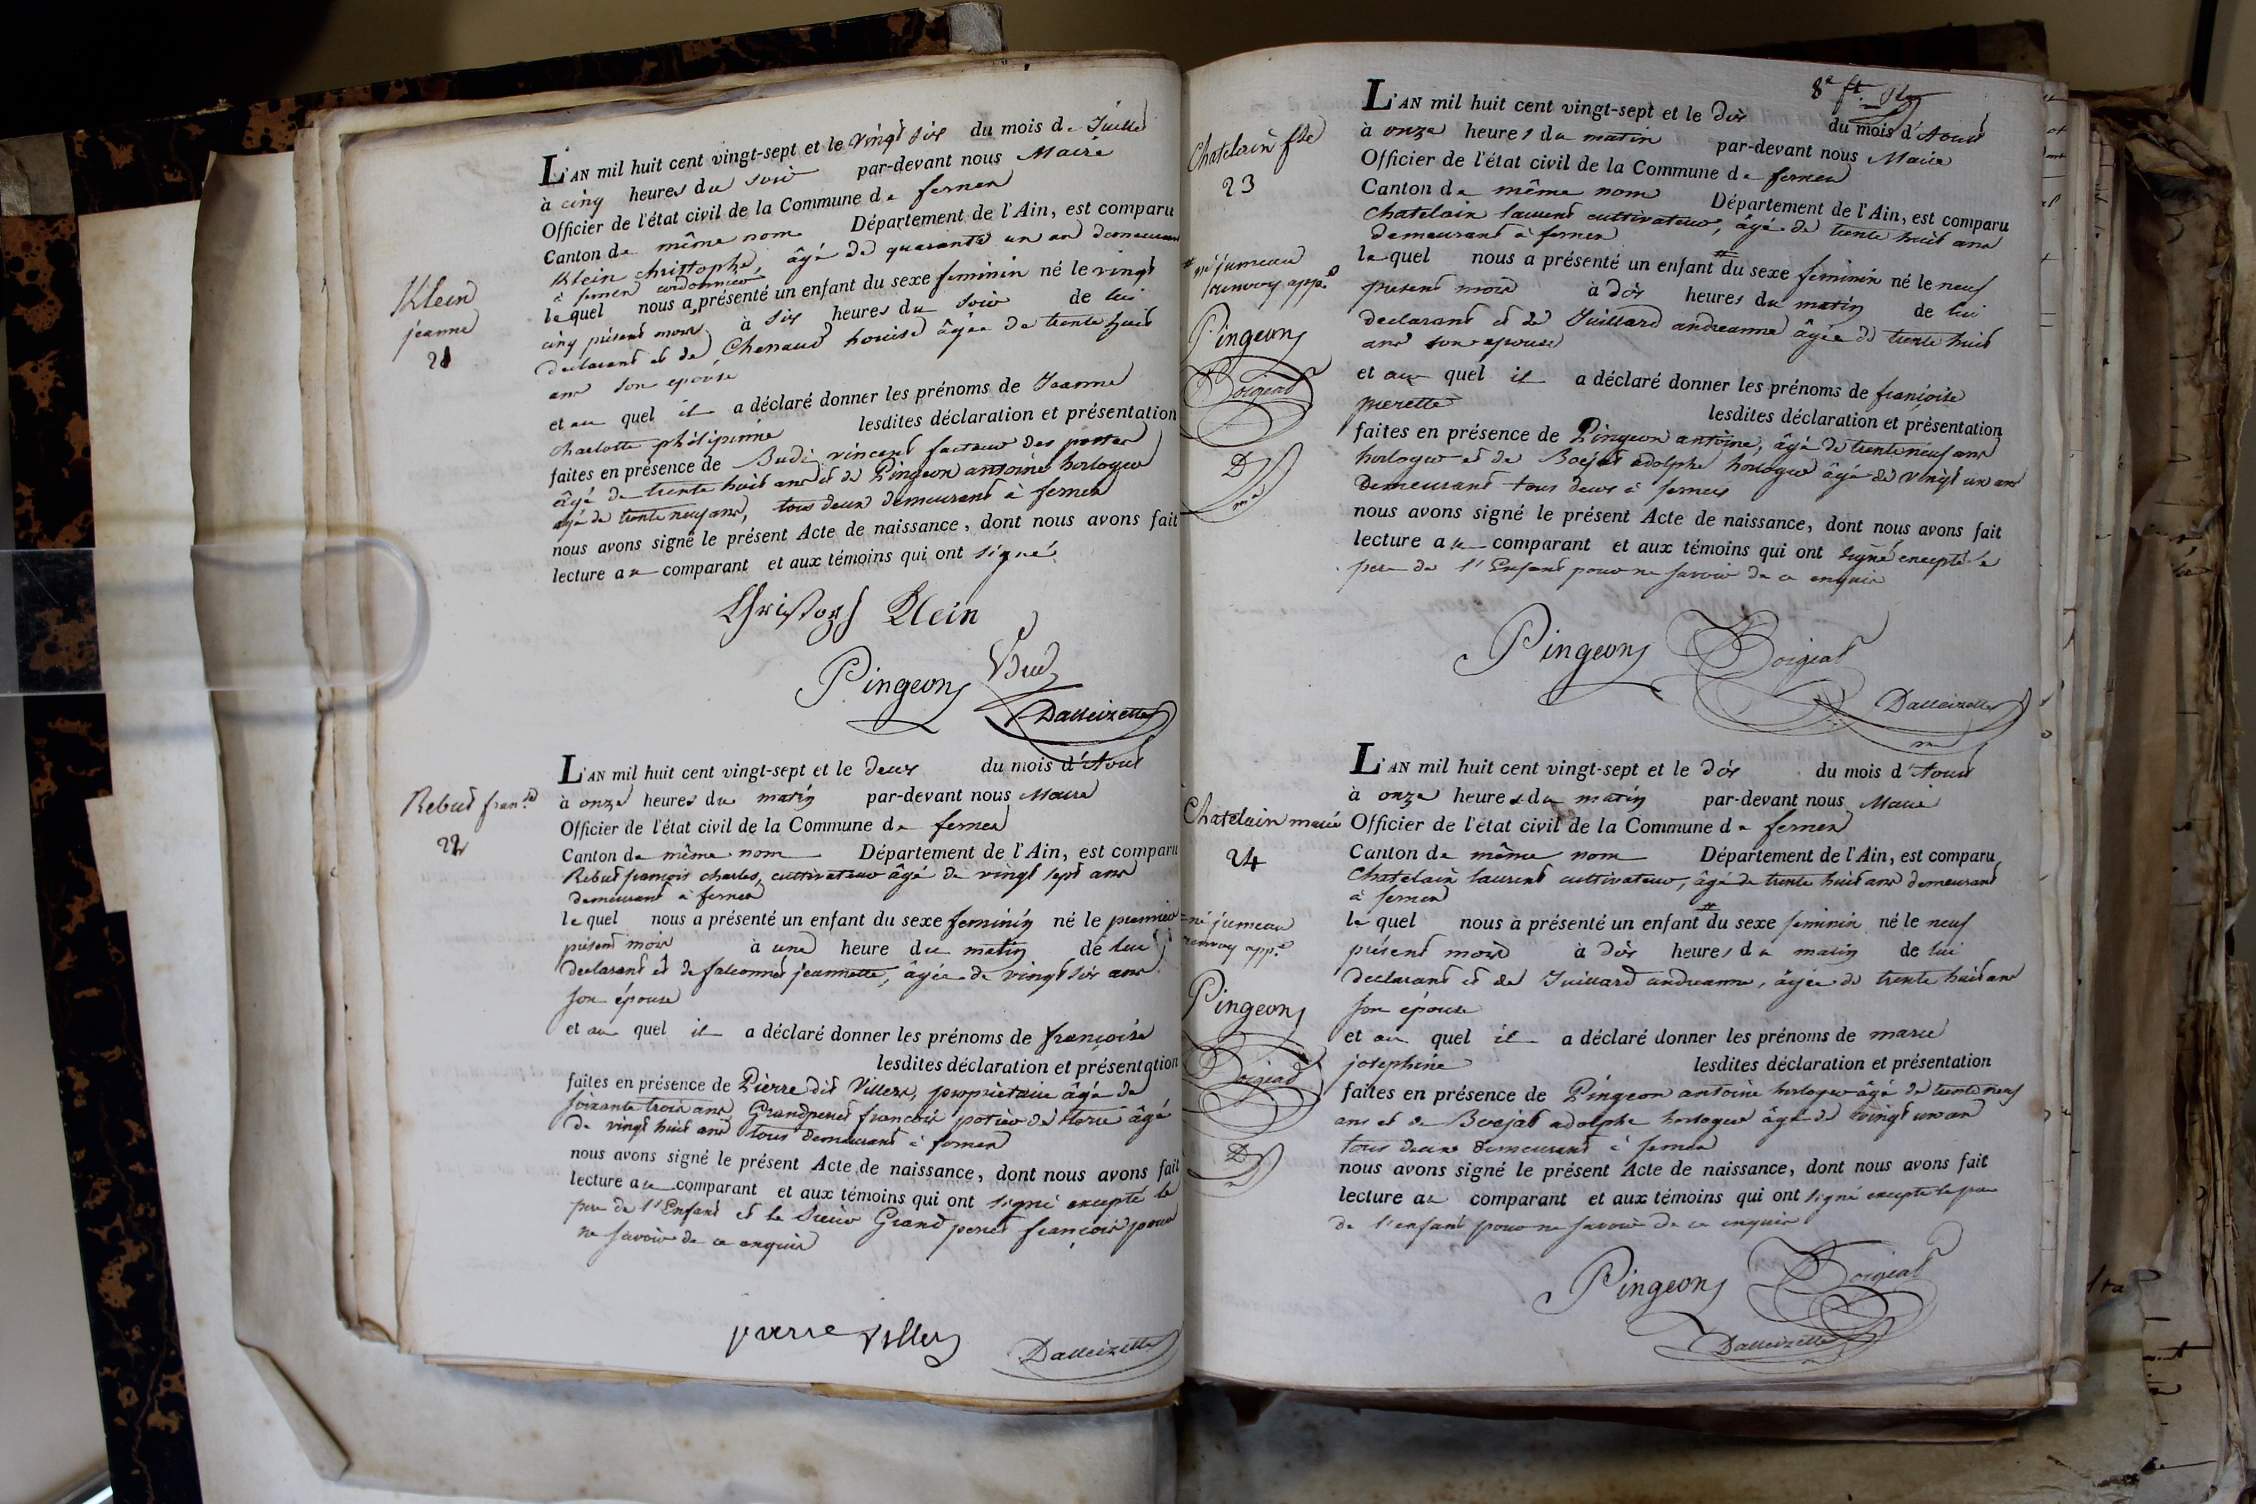 Klein
jeanne
21
L'AN mil huit cent vingt-sept et le vingt six du mois de Juillet
à cinq heures du soir par-devant nous Maire
Officier de l'état civil de la Commune de fernex
Canton de même nom Département de l'Ain, est comparu
Klein christophe, âgé de quarante un an demeurant
à fernex cordonnier
lequel nous a présenté un enfant du sexe feminin né le vingt
cinq présent mois à six heures du soir de lui
declarant et de Chenaud louise âgée de trente huit
ans son epouse
et au quel il a déclaré donner les prénoms de Jeanne
charlotte philipinne lesdites déclaration et présentation
faites en présence de Budi vincent facteur des postes
âgé de trente huit ans et de Pingeon antoine horloger
âgé de trente neuf ans, tous deux demeurant à fernex
nous avons signé le présent Acte de naissance, dont nous avons fait
lecture au comparant et aux témoins qui ont signé
Christoph Klein
Pingeon
Dalleizette
Rebut fran.se
22
L'AN mil huit cent vingt-sept et le deux du mois d'Aout
à onze heures du matin par-devant nous Maire
Officier de l'état civil de la Commune de fernex
Canton de même nom Département de l'Ain, est comparu
Rebut françois charles, cultivateur âgé de vingt sept ans
demeurant à fernex
lequel nous a présenté un enfant du sexe feminin né le premier
présent mois à une heure du matin de lui
declarant et de falconnet jeannette, âgée de vingt six ans
son épouse
et au quel il a déclaré donner les prénoms de françoise
lesdites déclaration et présentation
faites en présence de Pierre dit Villers, propriétaire âgé de
soixante trois ans, Grandperret françois potier de terre âgé
de vingt huit ans tous demeurant à fernex
nous avons signé le présent Acte de naissance, dont nous avons fait
lecture au comparant et aux témoins qui ont signé excepté le
pere de l'Enfant et le Sieur Grand perret françois pour
ne savoir de ce enquis
pierre villers
Dalleizette
8e ft
Chatelain fse
23
# né jumeau
renvoy app.é
Pingeon
Boejat
D
L'AN mil huit cent vingt-sept et le dix du mois d'Aout
à onze heures du matin par-devant nous Maire
Officier de l'état civil de la Commune de fernex
Canton de même nom Département de l'Ain, est comparu
Chatelain laurent cultivateur, âgé de trente huit ans
demeurant à fernex
lequel nous a présenté un enfant # du sexe feminin né le neuf
présent mois à dix heures du matin de lui
declarant et de Juillard andreanne âgée de trente huit
ans son epouse
et au quel il a déclaré donner les prénoms de françoise
pierette lesdites déclaration et présentation
faites en présence de Pingeon antoine, âgé de trente neuf ans
horloger et de Boejat adolphe horloger âgé de vingt un ans
Demeurant tous deux à fernex
nous avons signé le présent Acte de naissance, dont nous avons fait
lecture au comparant et aux témoins qui ont signé excepté le
pere de l'Enfant pour ne savoir de ce enquis
Pingeon Boejat
Dalleizette
Chatelain marie
24
# né jumeau
renvoy app.é
Pingeon
Boejat
D
L'AN mil huit cent vingt-sept et le dix du mois d'Aout
à onze heures du matin par-devant nous Maire
Officier de l'état civil de la Commune de fernex
Canton de même nom Département de l'Ain, est comparu
Chatelain laurent cultivateur, âgé de trente huit ans demeurant
à fernex
lequel nous a présenté un enfant # du sexe feminin né le neuf
présent mois à dix heures du matin de lui
declarant et de Juillard andreanne, âgée de trente huit ans
son épouse
et au quel il a déclaré donner les prénoms de marie
josephine lesdites déclaration et présentation
faites en présence de Pingeon antoine horloger âgé de trente neuf
ans et de Boejat adolphe horloger âgé de vingt un an
tous deux demeurant à fernex
nous avons signé le présent Acte de naissance, dont nous avons fait
lecture au comparant et aux témoins qui ont signé excepté le pere
de l'enfant pour ne savoir de ce enquis
Pingeon Boejat
Dalleizette